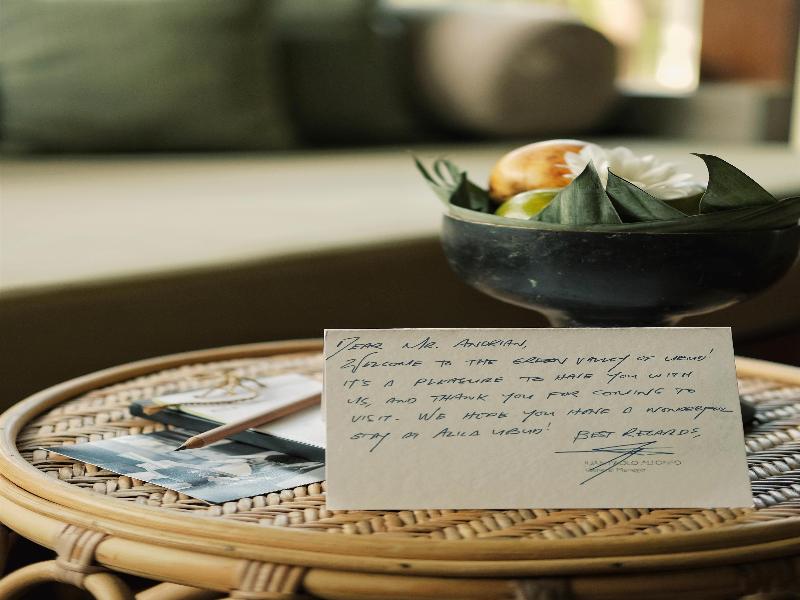 DEAR MR. ANDRIAN,
WELCOME TO THE GREEN VALLEY OF UBUD!
IT'S A PLEASURE TO HAVE YOU WITH
US, AND THANK YOU FOR COMING TO
VISIT. WE HOPE YOU HAVE A WONDERFUL
STAY AT ALILA UBUD!
BEST REGARDS,
General Manager